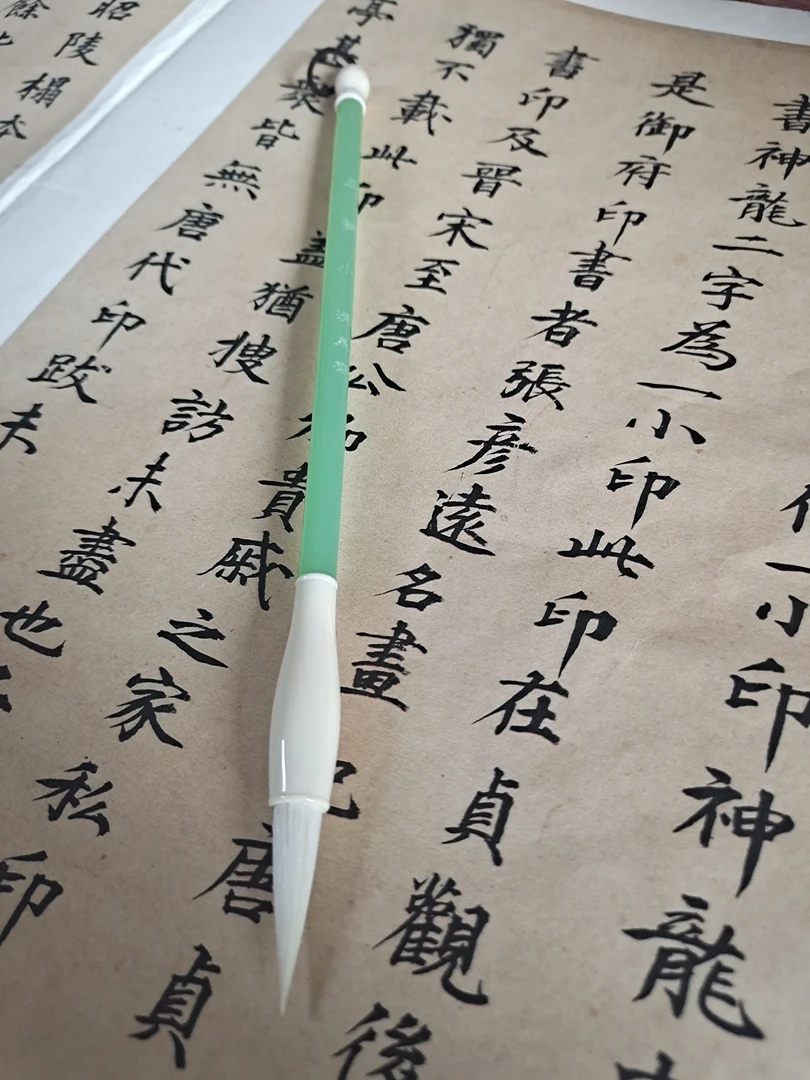 一小印神龍
書神龍二字為一小印此印在貞觀後
是御府印書者張彥遠名畫記唐貞
書印及晉宋至唐公私貴戚之家私印
獨不載此印蓋猶搜訪未盡也
亭甚衆皆無唐代印跋未
昭陵榻本
餘